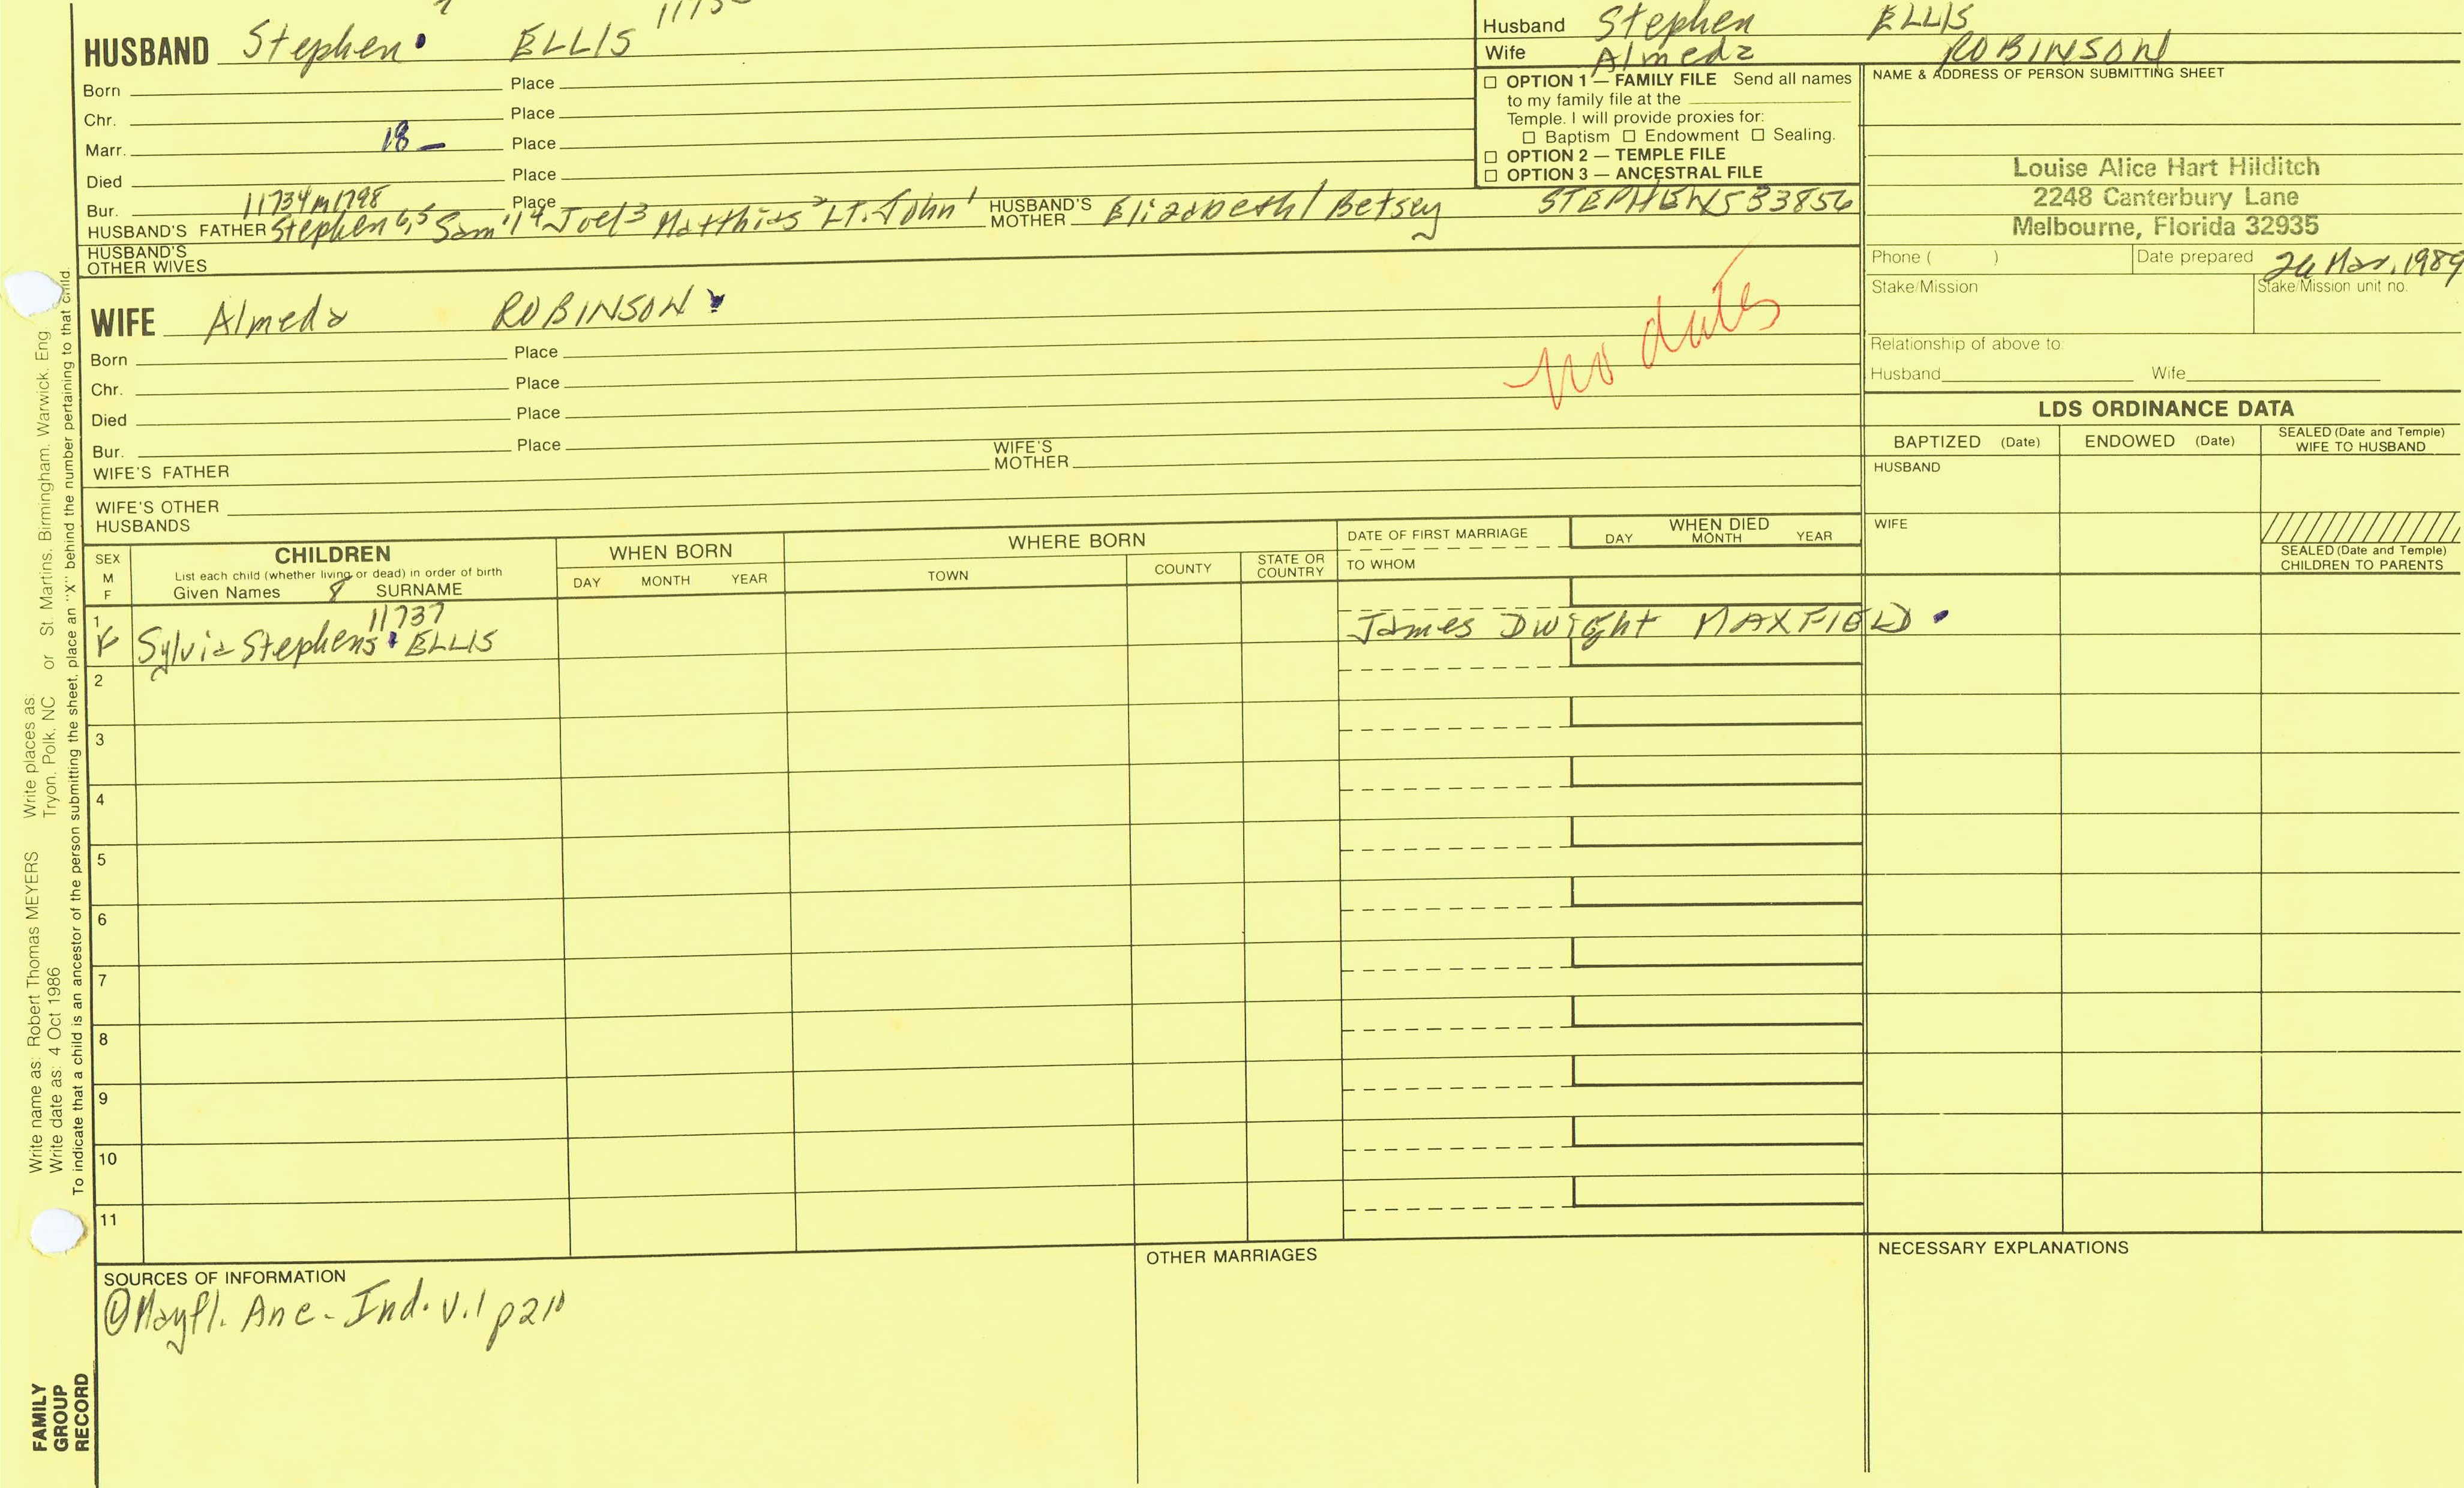 HUSBAND Stephen ELLIS
Born Place
Chr. Place
Marr. 18_ Place
Died Place
Bur. 11734m1798 Place
HUSBAND'S FATHER Stephen 6,5 Sam'l 4 Joel 3 Matthias 2 LT. John 1 HUSBAND'S MOTHER Elizabeth / Betsey STEPHENS 33856
HUSBAND'S OTHER WIVES
WIFE Almeda ROBINSON
Born Place
Chr. Place
Died Place
Bur. Place
WIFE'S FATHER WIFE'S MOTHER
WIFE'S OTHER HUSBANDS
no dates
Husband Stephen ELLIS
Wife Almeda ROBINSON
☐ OPTION 1 — FAMILY FILE Send all names
to my family file at the
Temple. I will provide proxies for:
☐ Baptism ☐ Endowment ☐ Sealing.
☐ OPTION 2 — TEMPLE FILE
☐ OPTION 3 — ANCESTRAL FILE
NAME & ADDRESS OF PERSON SUBMITTING SHEET
Louise Alice Hart Hilditch
2248 Canterbury Lane
Melbourne, Florida 32935
Phone ( ) Date prepared 24 Mar. 1989
Stake/Mission Stake/Mission unit no.
Relationship of above to:
Husband Wife
LDS ORDINANCE DATA
BAPTIZED (Date) ENDOWED (Date) SEALED (Date and Temple) WIFE TO HUSBAND
HUSBAND
WIFE
SEALED (Date and Temple) CHILDREN TO PARENTS
SEX M F
CHILDREN
List each child (whether living or dead) in order of birth
Given Names 8 SURNAME
WHEN BORN
DAY MONTH YEAR
WHERE BORN
TOWN COUNTY STATE OR COUNTRY
DATE OF FIRST MARRIAGE
TO WHOM
WHEN DIED
DAY MONTH YEAR
11737
1 F Sylvia Stephens ELLIS James Dwight MAXFIELD
2
3
4
5
6
7
8
9
10
11
SOURCES OF INFORMATION
Mayfl. Anc. Ind. v.1 p211
OTHER MARRIAGES
NECESSARY EXPLANATIONS
Write name as: Robert Thomas MEYERS Write places as:
Write date as: 4 Oct 1986 Tryon, Polk, NC or St. Martins, Birmingham, Warwick, Eng
To indicate that a child is an ancestor of the person submitting the sheet, place an "X" behind the number pertaining to that child.
FAMILY
GROUP
RECORD